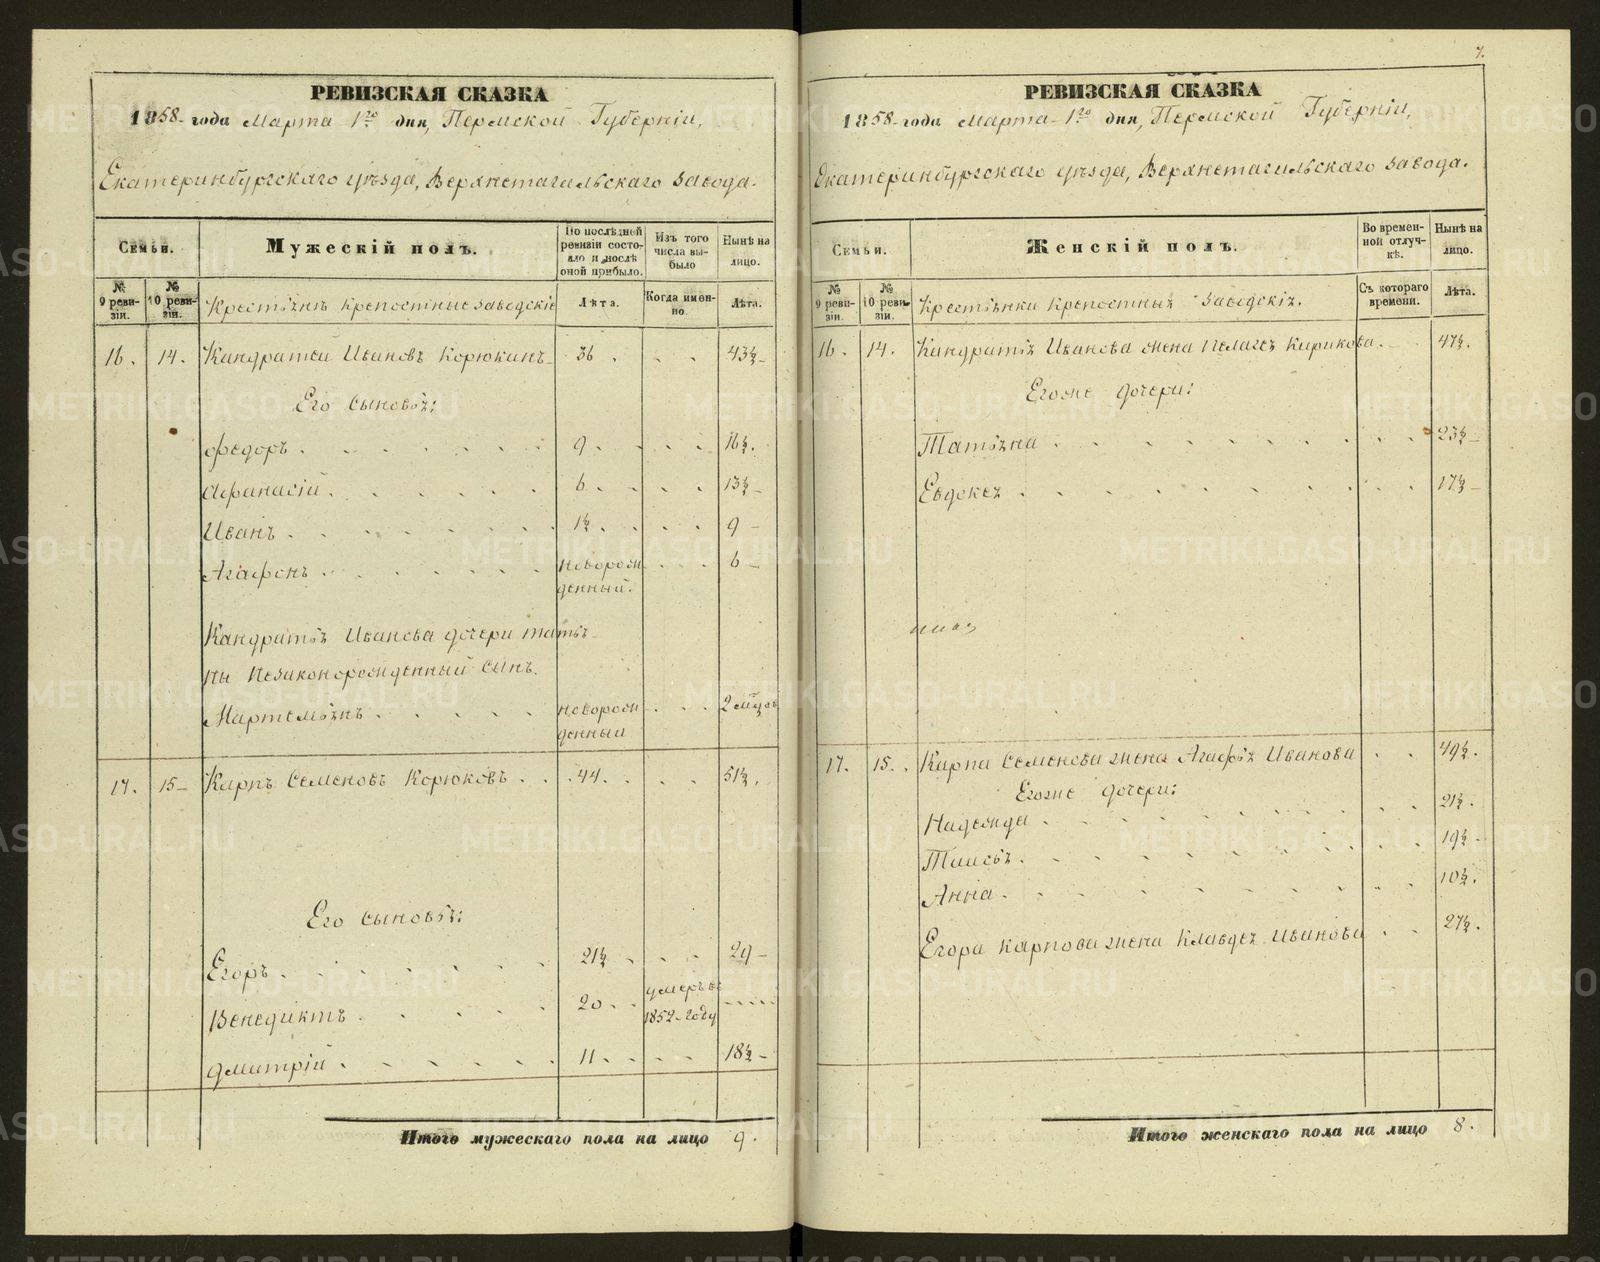 РЕВИЗСКАЯ СКАЗКА
1858 года Марта 1го дня, Пермской Губерніи,
Екатеринбургскаго уѣзда, Верхнетагильскаго завода.
Семьи.
Мужескій полъ.
По послѣдней ревизіи состояло и послѣ оной прибыло.
Изъ того числа выбыло
Нынѣ на лицо.
№ 9 ревизіи.
№ 10 ревизіи.
Крестьяне крепостные заводскіе
Лѣта.
Когда именно.
Лѣта.
16. 14. Кандратей Ивановъ Корюкинъ 36. 43½
Его сыновья:
Федоръ 9. 16½.
Афанасій 6. 13½
Иванъ 1½. 9
Агафонъ новорожденный. 6
Кандратья Иванова дочери татья-
ны незаконорожденный сынъ.
Мартемьянъ новорожденный 2 мѣсяц.
17. 15 Карпъ Семеновъ Корюковъ 44. 51½.
Его сыновья:
Егоръ 21½ 29
Венедиктъ 20 умеръ въ 1852 году
Дмитрій 11 18½
Итого мужескаго пола на лицо 9.
7.
РЕВИЗСКАЯ СКАЗКА
1858 года Марта 1го дня, Пермской Губерніи,
Екатеринбургскаго уѣзда, Верхнетагильскаго завода.
Семьи.
Женскій полъ.
Во временной отлучкѣ.
Нынѣ на лицо.
№ 9 ревизіи.
№ 10 ревизіи.
Крестьянки крепостныя заводскія.
Съ котораго времени.
Лѣта.
16. 14. Кандратья Иванова жена Пелагея Кирикова. 47½.
Егоже дочери:
Татьяна 23½
Евдокея 17½
17. 15. Карпа Семенова жена Агафья Иванова 49½.
Егоже дочери:
Надежда 21½.
Таисья 19½
Анна 10½.
Егора Карпова жена Клавдея Иванова 27½.
Итого женскаго пола на лицо 8.
METRIKI.GASO-URAL.RU